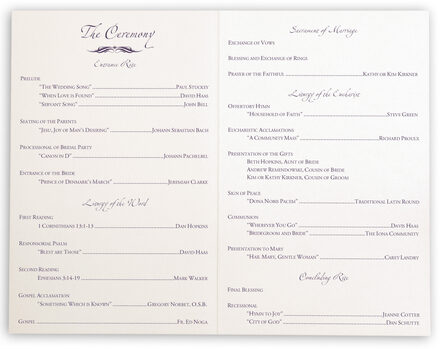 The Ceremony
Entrance Rite
Prelude
"The Wedding Song" Paul Stuckey
"When Love is Found" David Haas
"Servant Song" John Bell
Seating of the Parents
"Jesu, Joy of Man's Desiring" Johann Sebastian Bach
Processional of Bridal Party
"Canon in D" Johann Pachelbel
Entrance of the Bride
"Prince of Denmark's March" Jeremiah Clarke
Liturgy of the Word
First Reading
1 Corinthians 13:1-13 Dan Hopkins
Responsorial Psalm
"Blest are Those" David Haas
Second Reading
Ephesians 3:14-19 Mark Walker
Gospel Acclamation
"Something Which is Known" Gregory Norbet, O.S.B.
Gospel Fr. Ed Noga
Sacrament of Marriage
Exchange of Vows
Blessing and Exchange of Rings
Prayer of the Faithful Kathy or Kim Kirkner
Liturgy of the Eucharist
Offertory Hymn
"Household of Faith" Steve Green
Eucharistic Acclamations
"A Community Mass" Richard Proulx
Presentation of the Gifts:
Beth Hopkins, Aunt of Bride
Andrew Remendowski, Cousin of Bride
Kim or Kathy Kirkner, Cousin of Groom
Sign of Peace
"Dona Nobis Pacem" Traditional Latin Round
Communion
"Wherever You Go" Davis Haas
"Bridegroom and Bride" The Iona Community
Presentation to Mary
"Hail Mary, Gentle Woman" Carey Landry
Concluding Rite
Final Blessing
Recessional
"Hymn to Joy" Jeanne Cotter
"City of God" Dan Schutte